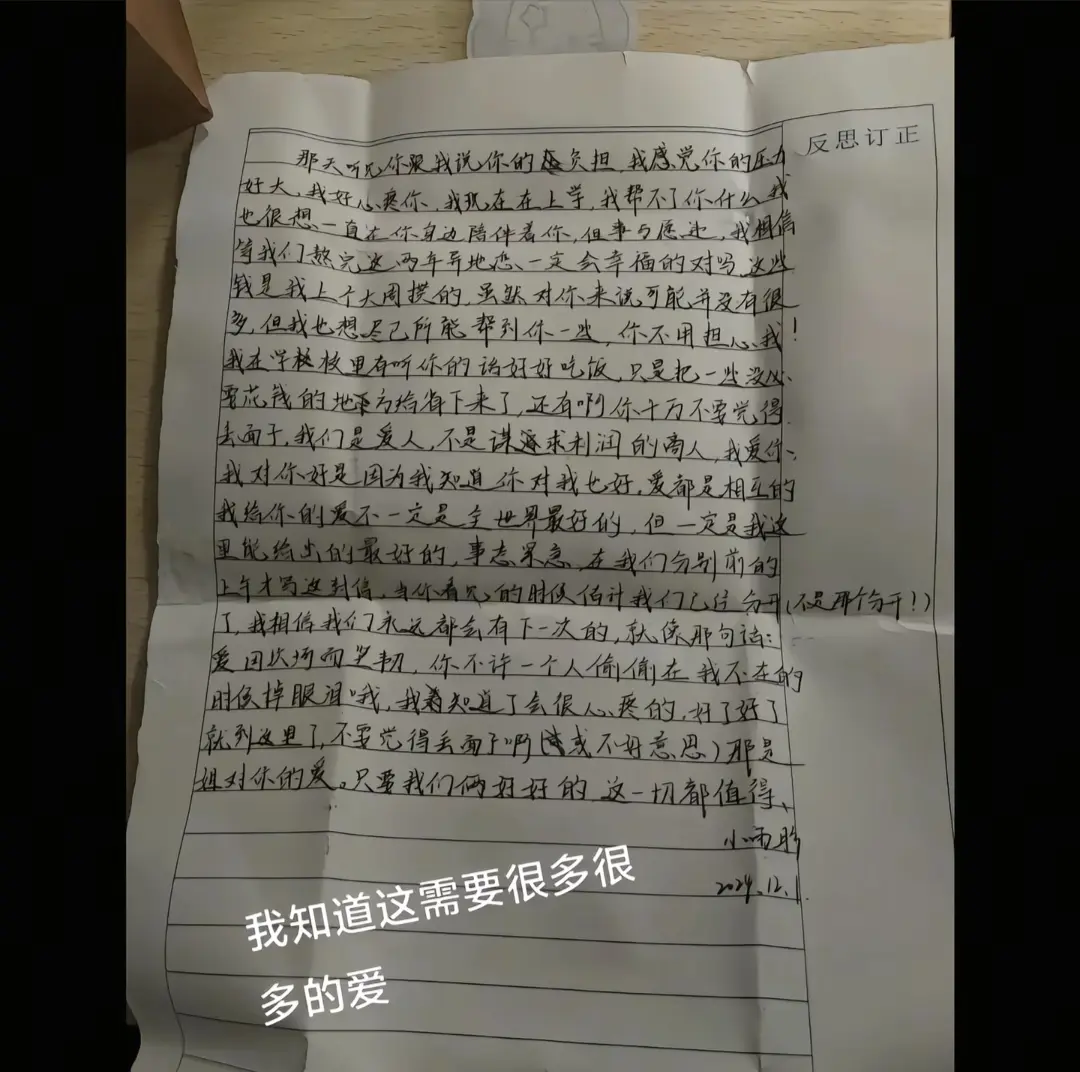 反思订正
那天听见你跟我说你的负担,我感觉你的压力
好大,我好心疼你,我现在在上学,我帮不了你什么,我
也很想一直在你身边陪伴着你,但事与愿违,我相信
等我们熬完这两年异地恋、一定会幸福的对吗,这些
钱是我上个大周攒的,虽然对你来说可能并没有很
多,但我也想尽己所能帮到你一些,你不用担心我!
我在学校校里有听你的话好好吃饭,只是把一些没必
要花钱的地方给省下来了,还有啊你千万不要觉得
丢面子,我们是爱人,不是谋求利润的商人,我爱你、
我对你好是因为我知道你对我也好,爱都是相互的
我给你的爱不一定是全世界最好的,但一定是我这
里能给出的最好的,事态紧急,在我们分别前的
上午才写这封信,当你看完的时候估计我们已经分开(不是那个分开!)
了,我相信我们永远都会有下一次的,就像那句话:
爱因坎坷而坚韧,你不许一个人偷偷在我不在的
时候掉眼泪哦,我知道了会很心疼的,好了好了
就到这里了,不要觉得丢面子啊(或不好意思)那是
姐对你的爱。只要我们俩好好的 这一切都值得、
小雨
2024.12.1
我知道这需要很多很
多的爱